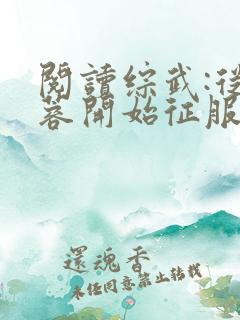 閱讀綜武:從
蓉開始征服
還魂香
未经同意禁止转载